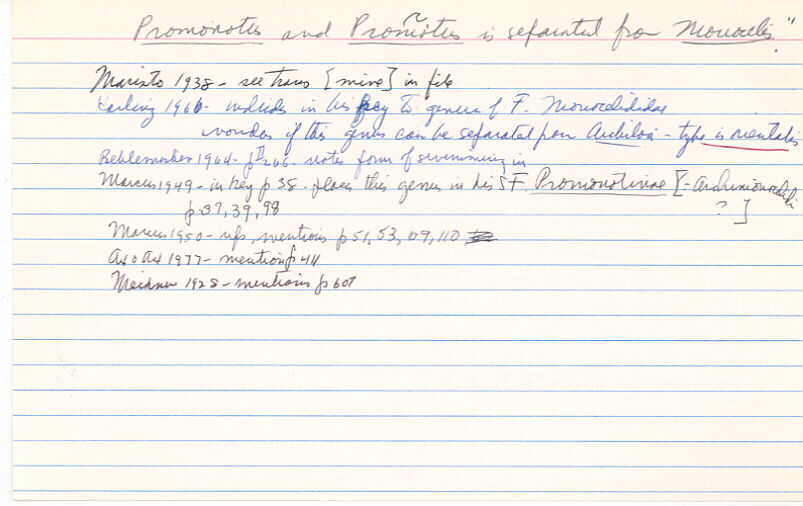 Promonotus and Promotus is separated from Monocelis"
Maristo 1938 - see trans [mine] in file
Karling 1966 - includes in his key to genera of F. Monocelididae
wonders if this genus can be separated from Archiloa - type is orientalis
1964 - p II 266 - notes form of swimming in
Marcus 1949 - in key p 38 - places this genus in his SF. Promonotinae [-
p 37, 39, 98 ? ]
Marcus 1950 - refs, mentions p 51, 53, 09, 110
Ax & Ax 1977 - mention p 411
Meixner 1928 - mentions p 607